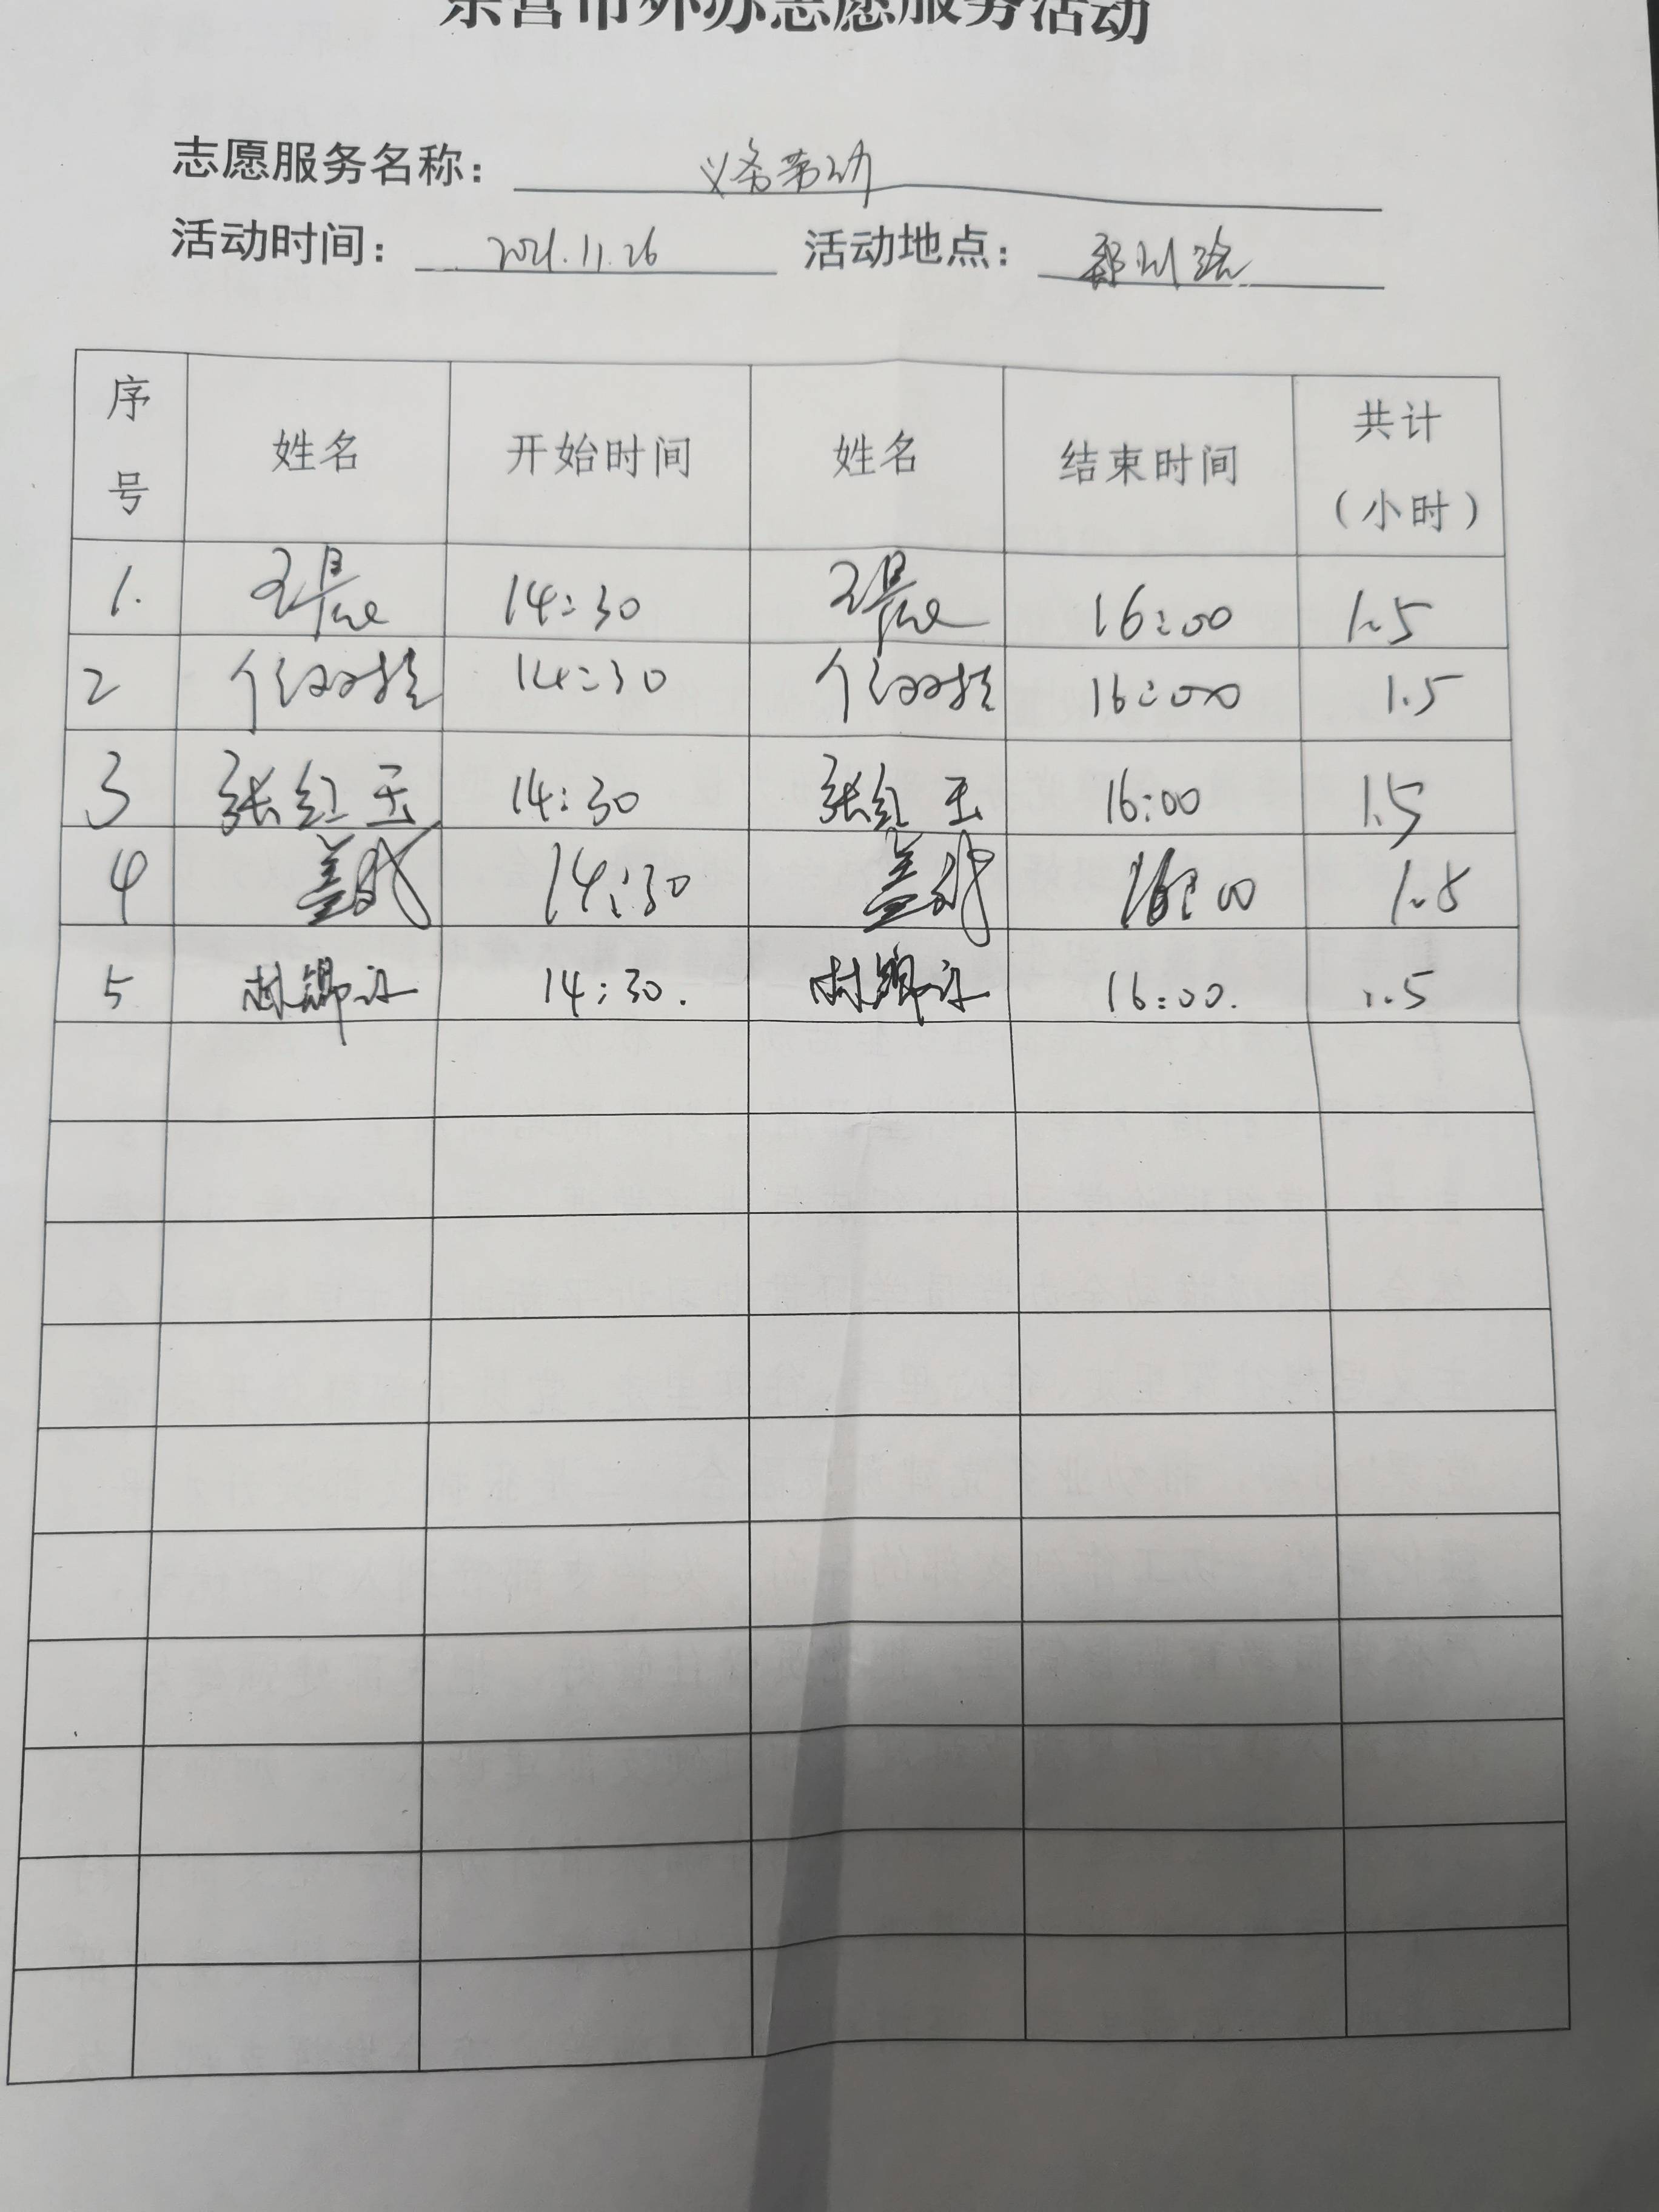 东营市外办志愿服务活动
志愿服务名称： 义务劳动
活动时间： 2021.11.26 活动地点： 郑州路
序号 姓名 开始时间 姓名 结束时间 共计（小时）
1. 14:30 16:00 1.5
2 14:30 16:00 1.5
3 张红玉 14:30 张红玉 16:00 1.5
4 14:30 16:00 1.5
5 14:30. 16:00. 1.5